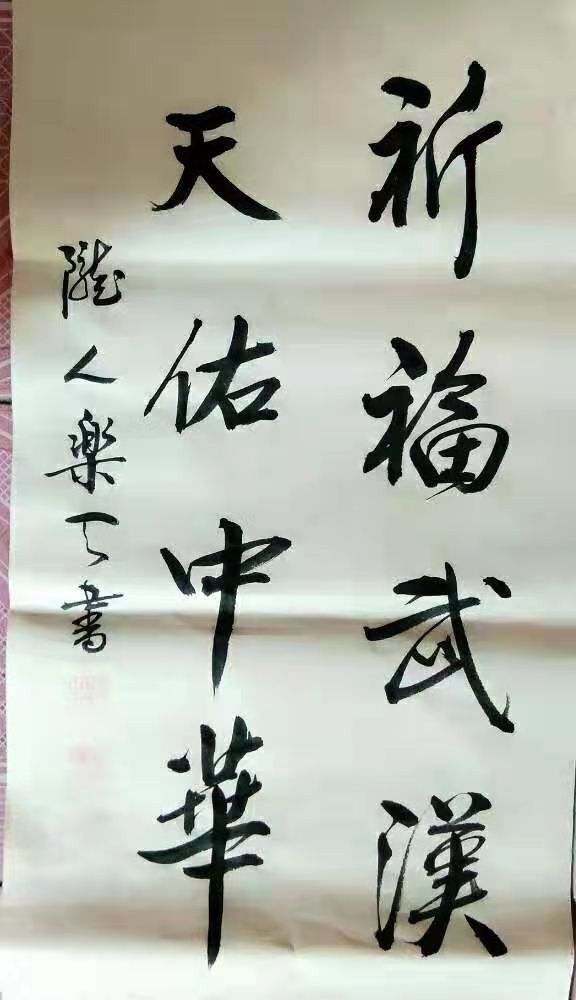 祈福武漢
天佑中華
隴人樂天書